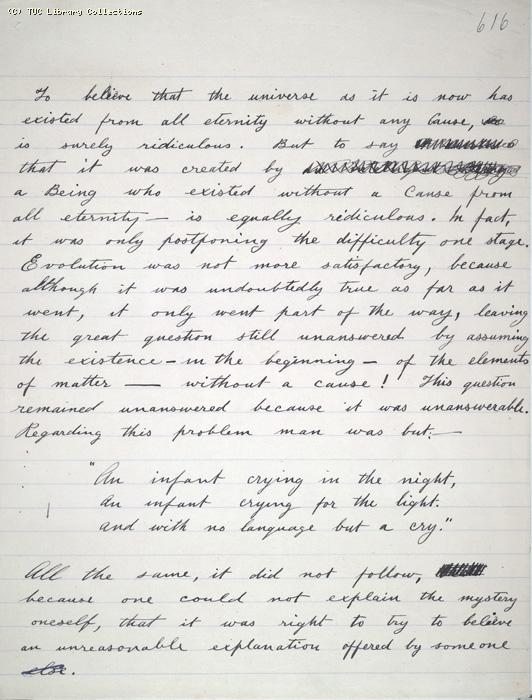 (C) TUC Library Collections
616
To believe that the universe as it is now has
existed from all eternity without any Cause,
is surely ridiculous. But to say
that it was created by
a Being who existed without a Cause from
all eternity — is equally ridiculous. In fact,
it was only postponing the difficulty one stage.
Evolution was not more satisfactory, because
although it was undoubtedly true as far as it
went, it only went part of the way, leaving
the great question still unanswered by assuming
the existence — in the beginning — of the elements
of matter — without a cause! This question
remained unanswered because it was unanswerable.
Regarding this problem man was but: —
"An infant crying in the night,
An infant crying for the light.
And with no language but a cry."
All the same, it did not follow,
because one could not explain the mystery
oneself, that it was right to try to believe
an unreasonable explanation offered by someone
else.